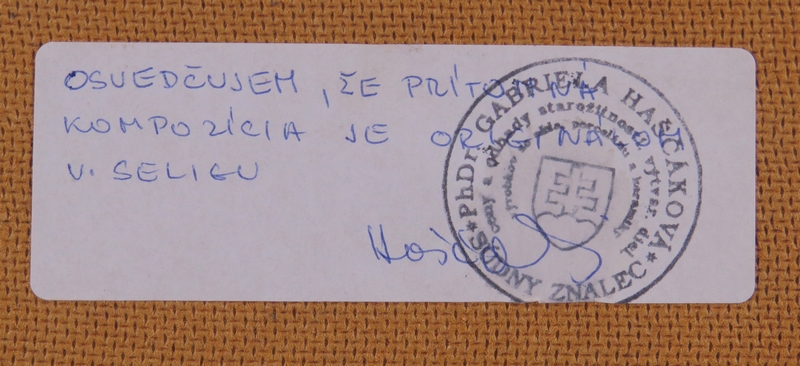 OSVEDČUJEM, ŽE PRÍTOMNÁ
KOMPOZÍCIA JE ORIGINÁLOM
V. SELIGU
PhDr. GABRIELA HAŠČÁKOVÁ
ceny a odhady starožitností, výtvar. diel
porcelánu a keramiky
SÚDNY ZNALEC